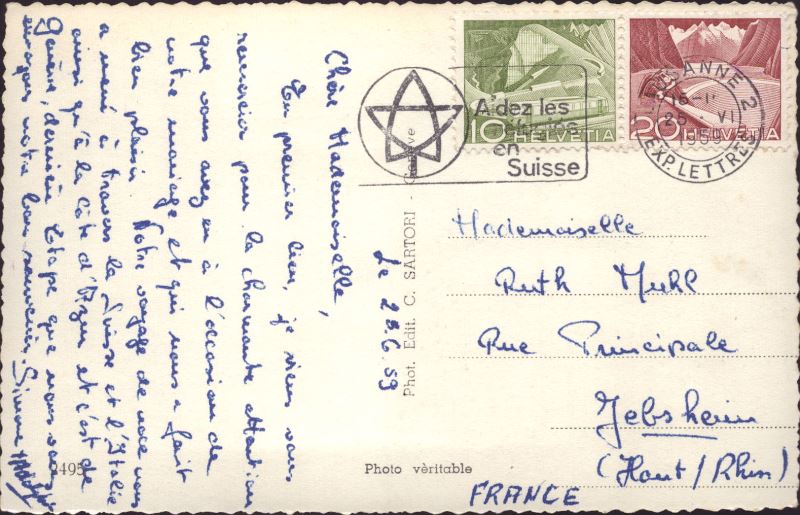 Chère Mademoiselle,
En premier lieu, je viens vous
remercier pour la charmante attention
que vous avez eu à l'occasion de
notre mariage et qui nous a fait
bien plaisir. Notre voyage de noce nous
a mené à travers la Suisse et l'Italie
ainsi qu'à la Côte d'Azur et c'est de
Genève, dernière Etape que nous vous
envoyons notre bon souvenir. Simone
Le 23.6.59
9495
Phot. Edit. C. SARTORI - Genève
Photo vèritable
Aidez les
en
Suisse
10 HELVETIA
20 HELVETIA
LAUSANNE 2
EXP. LETTRES
Mademoiselle
Ruth Muhl
Rue Principale
Jebsheim
(Haut/Rhin)
FRANCE